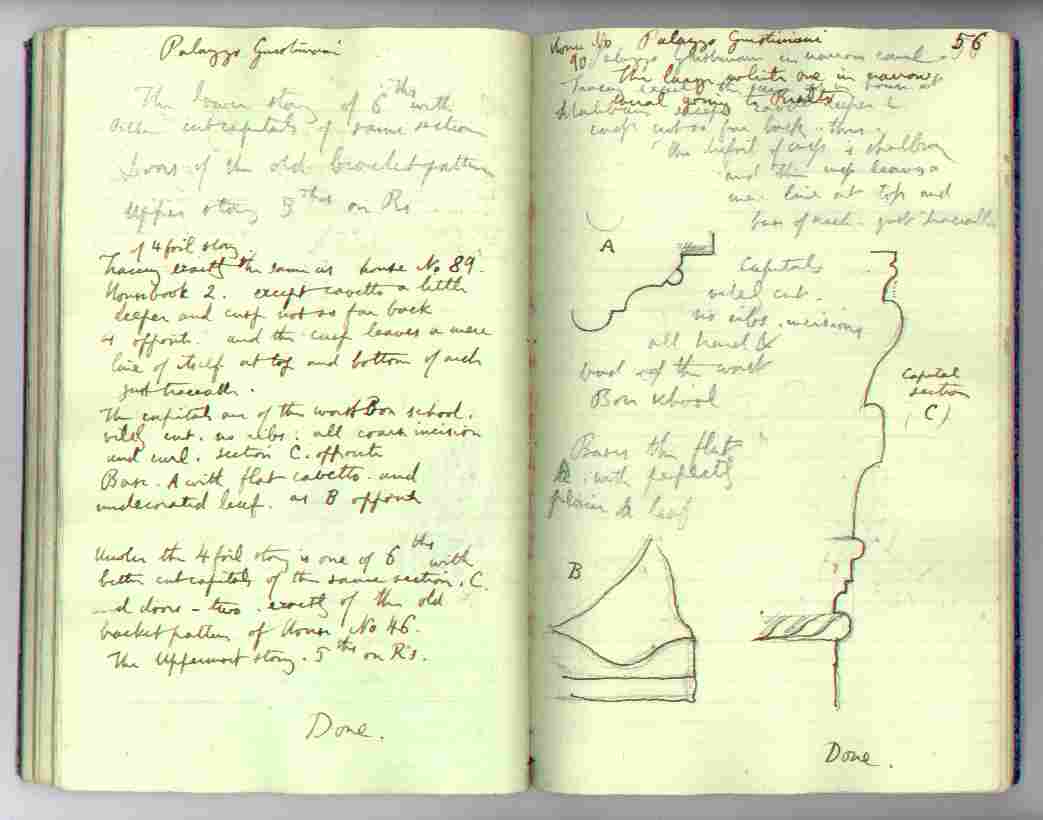 Palazzo Giustiniani
The lower story of 6ths with
better cut capitals of same section
Doors of the old bracket pattern
Upper story 5ths on Rs
of 4 foil story
Tracery exactly the same as house No 89.
Housebook 2. except cavetto a little
deeper and cusp not so far back
opposite. and the cusp leaves a mere
line of itself at top and bottom of each
just traceable.
The capitals are of the worst Bon school.
vilely cut. no ribs: all coarse incision
and curl. section C. opposite
Base. A with flat cavetto. and
undecorated leaf. as B opposite
Under the 4 foil story is one of 6ths with
better cut capitals of the same section. C
and doors - two. exactly of the old
bracket pattern of House No 46.
The Uppermost story. 5ths on R's.
Done.
56
House No Palazzo Giustiniani
90 Palazzo Giustiniani in narrow canal
The large white one in narrow
canal going to Rialto
Tracery exactly the same house at
except deeper &
cusp not so far back. thus.
the trefoil of cusp is shallow
and the cusp leaves a
mere line at top and
base of each. just traceable
A
Capitals
vilely cut.
no ribs. incisions
all hard &
bad of the worst
Bon school
Capital
section
(C)
Bases the flat
A. with perfectly
plain leaf
B
Done.